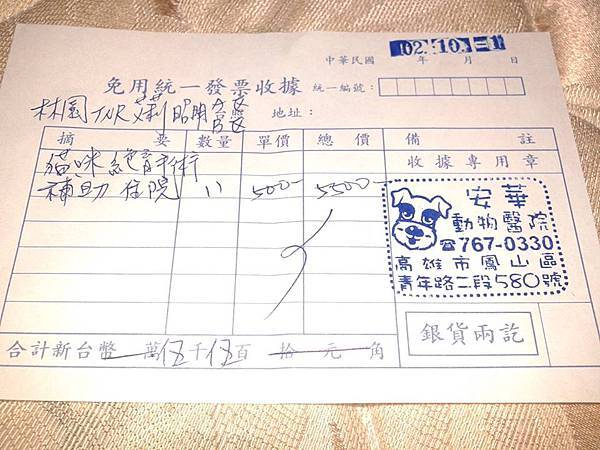 02.10.-1
中華民國 年 月 日
免用統一發票收據 統一編號：
林園 TNR 地址：
摘 要 數量 單價 總 價 備 註
貓咪絕育手術 收據專用章
補助住院 11 500- 5500-
安華
動物醫院
☎767-0330
高雄市鳳山區
青年路二段580號
銀貨兩訖
合計新台幣 萬伍千伍百 拾 元 角